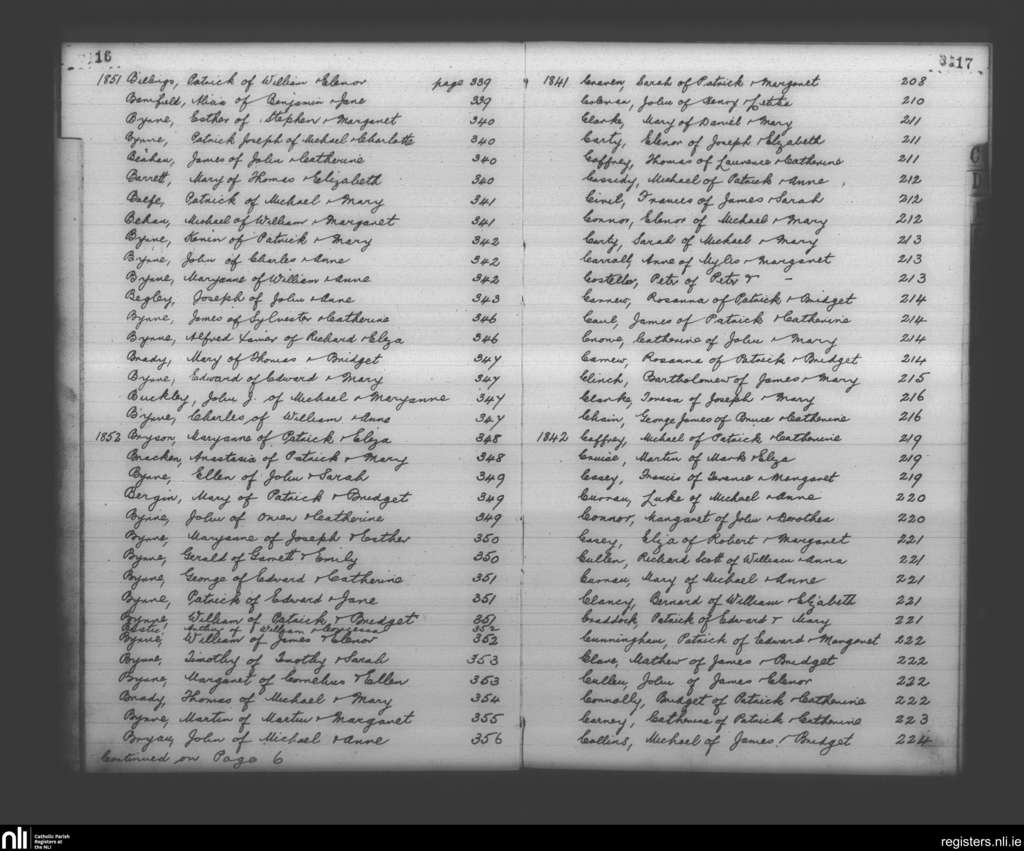 16
1851 Billings, Patrick of William & Elenor page 339
Bamfield, Alicia of Benjamin & Jane 339
Byrne, Esther of Stephen & Margaret 340
Byrne, Patrick Joseph of Michael & Charlotte 340
Beahan, James of John & Catherine 340
Barrett, Mary of Thomas & Elizabeth 340
Patrick of Michael & Mary 341
Behan, Michael of William & Margaret 341
Byrne, of Patrick & Mary 342
Byrne, John of Charles & Anne 342
Byrne, Maryanne of William & Anne 342
Begley, Joseph of John & Anne 343
Byrne, James of Sylvester & Catherine 346
Byrne, Alfred Xavier of Richard & Eliza 346
Brady, Mary of Thomas & Bridget 347
Byrne, Edward of Edward & Mary 347
Buckley, John J. of Michael & Maryanne 347
Byrne, Charles of William & Anne 347
1852 Bryson, Maryanne of Patrick & Eliza 348
Bracken, Anastasia of Patrick & Mary 348
Byrne, Ellen of John & Sarah 349
Bergin, Mary of Patrick & Bridget 349
Byrne, John of Owen & Catherine 349
Byrne, Maryanne of Joseph & Esther 350
Byrne, Gerald of Garrett & Emily 350
Byrne, George of Edward & Catherine 351
Byrne, Patrick of Edward & Jane 351
Byrne, William of Patrick & Bridget 351
of William & 352
Byrne, William of James & Elenor 352
Byrne, Timothy of Timothy & Sarah 353
Byrne, Margaret of Cornelius & Ellen 353
Brady, Thomas of Michael & Mary 354
Byrne, Martin of Martin & Margaret 355
Bryan, John of Michael & Anne 356
Continued on Page 6
17
1841 Craven, Sarah of Patrick & Margaret 208
John of Henry 210
Clarke, Mary of Daniel & Mary 211
Carty, Elenor of Joseph & Elizabeth 211
Caffrey, Thomas of Laurence & Catherine 211
Cassidy, Michael of Patrick & Anne 212
Frances of James & Sarah 212
Connor, Elenor of Michael & Mary 212
Carty, Sarah of Michael & Mary 213
Carroll, Anne of Myles & Margaret 213
Costello, Peter of Peter & - 213
Carmew, Rosanna of Patrick & Bridget 214
Caul, James of Patrick & Catherine 214
Crowe, Catherine of John & Mary 214
Carnew, Rosanna of Patrick & Bridget 214
Clinch, Bartholomew of James & Mary 215
Clarke, Teresa of Joseph & Mary 216
Chain, George James of Bruce & Catherine 216
1842 Caffrey, Michael of Patrick & Catherine 219
Cruise, Martin of Mark & Eliza 219
Casey, Francis of Terence & Margaret 219
Curran, Luke of Michael & Anne 220
Connor, Margaret of John & Dorothea 220
Casey, Eliza of Robert & Margaret 221
Cullen, Richard Scott of William & Anna 221
Curran, Mary of Michael & Anne 221
Clancy, Bernard of William & Elizabeth 221
Craddock, Patrick of Edward & Mary 221
Cunningham, Patrick of Edward & Margaret 222
Clare, Mathew of James & Bridget 222
Cullen, John of James & Elenor 222
Connolly, Bridget of Patrick & Catherine 222
Carney, Catherine of Patrick & Catherine 223
Collins, Michael of James & Bridget 224
C
D
nli Catholic Parish
Registers at
the NLI
registers.nli.ie